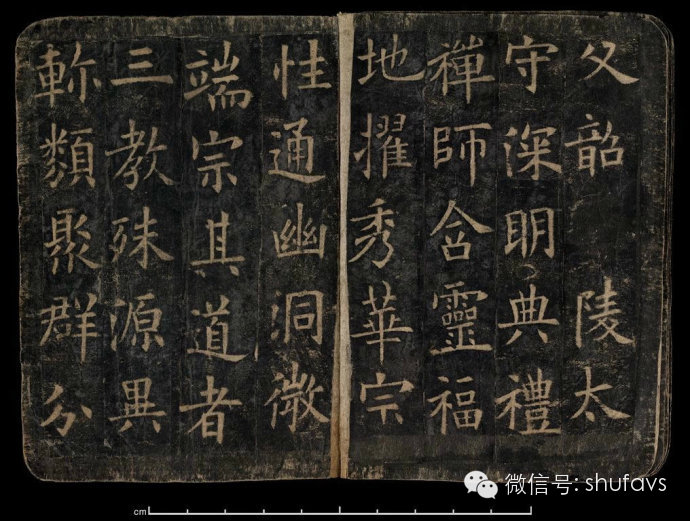 父韶 陵太
守深明典禮
禪師含靈福
地擢秀華宗
性通幽洞微
端宗其道者
三教殊源異
軫類聚群分
cm
微信号: shufavs